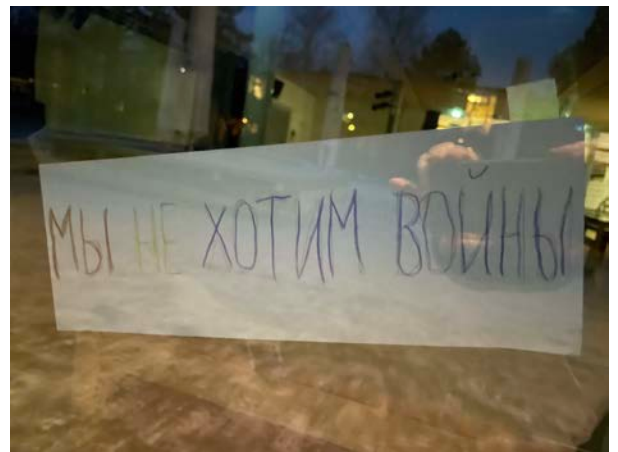 МЫ НЕ ХОТИМ ВОЙНЫ